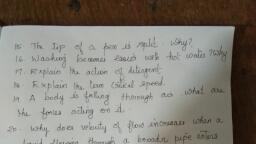 15. The tip of a pen is split why?
16. Washing becomes easier with hot water? Why
17. Explain the action of detergent
18. Explain the term critical speed.
19. A body is falling through air what are
the forces acting on it.
20. Why does velocity of flow increases when a
liquid flowing through a broader pipe enters